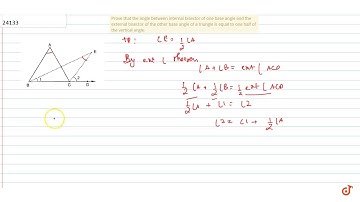 24133
Prove that the angle between internal bisector of one base angle and the
external bisector of the other base angle of a triangle is equal to one half of
the vertical angle.
TP: ∠E = 1/2 ∠A
By ext ∠ theorem
∠A + ∠B = ext ∠ ACD
1/2 ∠A + 1/2 ∠B = 1/2 ext ∠ ACD
1/2 ∠A + ∠1 = ∠2
∠2 = ∠1 + 1/2 ∠A
A
E
1
2
B
C
D